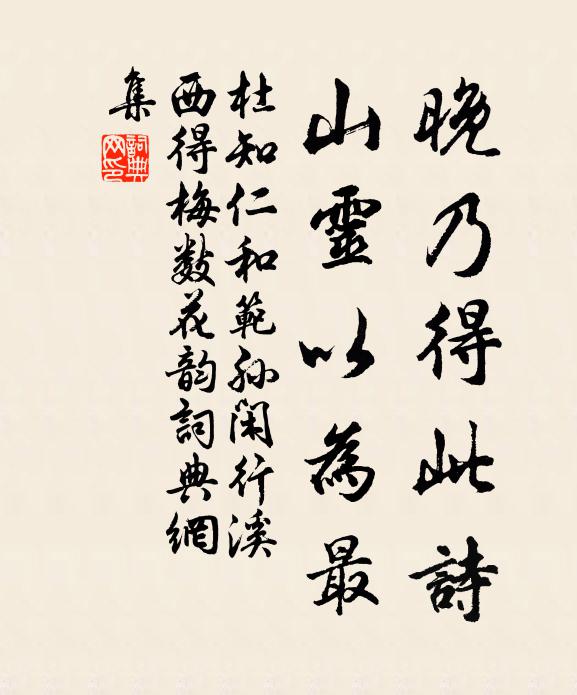 晚乃得此詩
山靈以為最
杜知仁和範孫閑行溪
西得梅數花韵詞典網
集
詞典
網印